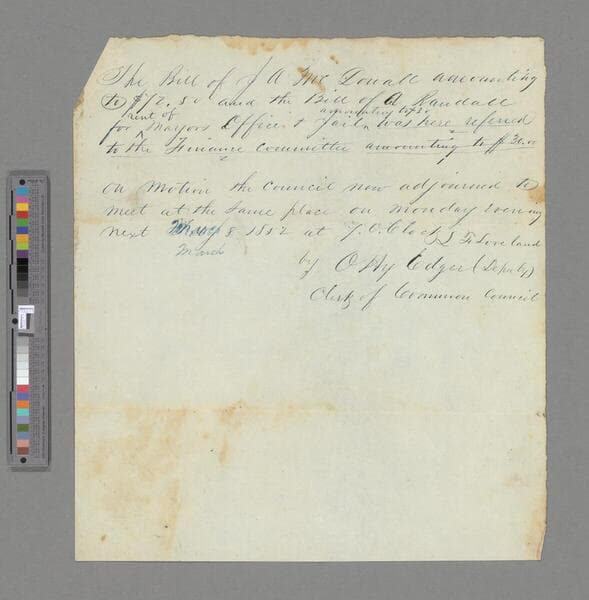 The Bill of J A Mc Dowall amounting
to $72.50 and the Bill of A Randall
rent of amounting to $30
for Mayors Office & Jail was here referred
to the Finance Committee amounting to $30.00
on motion the Council now adjourned to
meet at the same place on Monday evening
next May 8 1852 at 7. O. Clock J. F. Loveland
March
by O Hy Edger (Deputy)
Clerk of Common Council